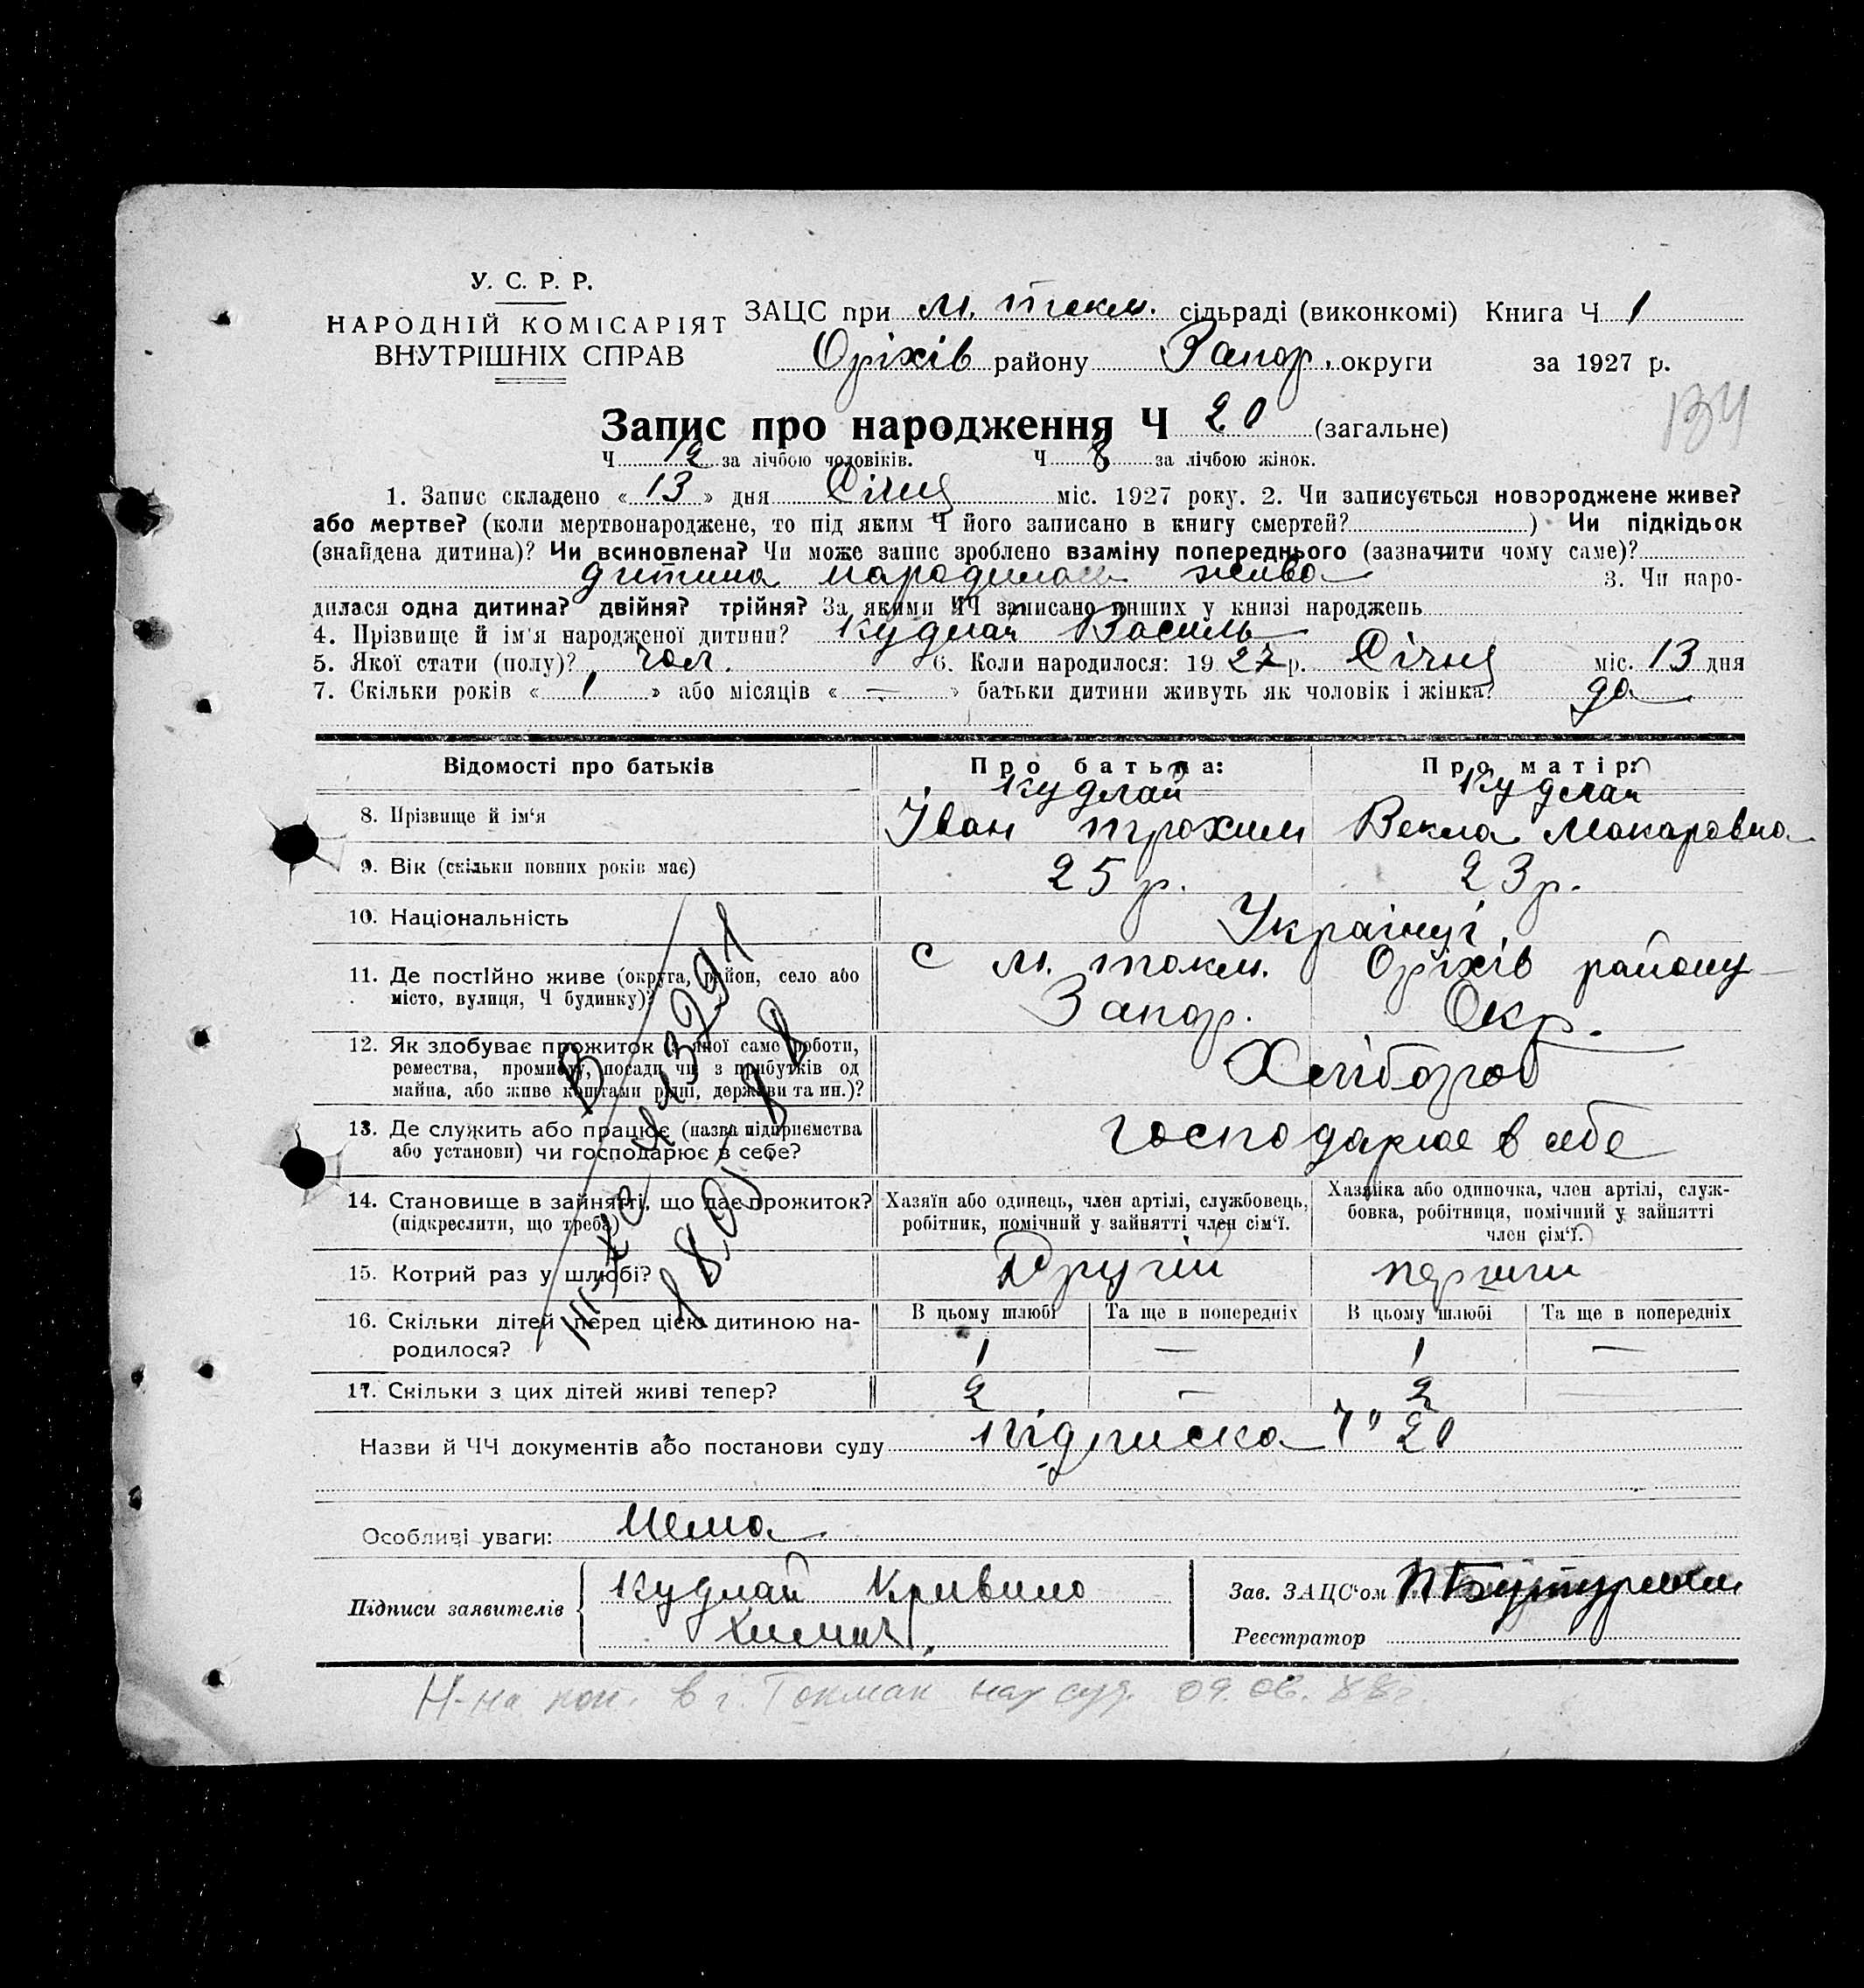 У. С. Р. Р.
НАРОДНІЙ КОМІСАРІЯТ
ВНУТРІШНІХ СПРАВ
ЗАЦС при м. токм. сільраді (виконкомі) Книга Ч 1
Оріхів району Запор. округи за 1927 р.
134
Запис про народження Ч 20 (загальне)
Ч 12 за лічбою чоловіків. Ч 8 за лічбою жінок.
1. Запис складено « 13 » дня Січня міс. 1927 року. 2. Чи записується новороджене живе?
або мертве? (коли мертвонароджене, то під яким Ч його записано в книгу смертей? ) Чи підкідьок
(знайдена дитина)? Чи всиновлена? Чи може запис зроблено взаміну попереднього (зазначити чому саме)?
дитина народилась жива 3. Чи наро-
дилася одна дитина? двійня? трійня? За якими ЧЧ записано инших у книзі народжень
4. Прізвище й ім'я народженої дитини? Кудлай Василь
5. Якої стати (полу)? чол. 6. Коли народилося: 19 27 р. Січня міс. 13 дня
7. Скільки років « 1 » або місяців « — » батьки дитини живуть як чоловік і жінка? да
Відомості про батьків Про батька: Про матір:
Кудлай Кудлай
8. Прізвище й ім'я Іван трохим Векла Макаровна
9. Вік (скільки повних років має) 25 р. 23 р.
10. Національність Українці
11. Де постійно живе (округа, район, село або
місто, вулиця, Ч будинку)?
С м. токм. Оріхів району
Запор. Окр.
12. Як здобуває прожиток (з якої саме роботи,
ремества, промислу, посади чи з прибутків од
майна, або живе коштами рідні, держави та ин.)?
Хлібороб
13. Де служить або працює (назва підприємства
або установи) чи господарює в себе?
господарює в себе
14. Становище в зайнятті, що дає прожиток?
(підкреслити, що треба)
Хазяїн або одинець, член артілі, службовець,
робітник, помічний у зайнятті член сім'ї.
Хазяйка або одиночка, член артілі, служ-
бовка, робітниця, помічний у зайнятті
член сім'ї.
15. Котрий раз у шлюбі? Другій первий
16. Скільки дітей перед цією дитиною на-
родилося?
В цьому шлюбі Та ще в попередніх В цьому шлюбі Та ще в попередніх
1 — 1 —
17. Скільки з цих дітей живі тепер? 2 — 2 —
Назви й ЧЧ документів або постанови суду Підписка Ч 20
Особливі уваги: Нема
Підписи заявителів Кудлай
Зав. ЗАЦС'ом
Реєстратор
в г. Токман